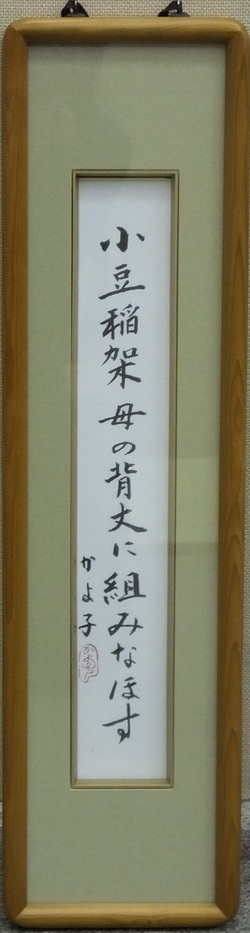 小豆稲架母の背丈に組みなほす
かよ子